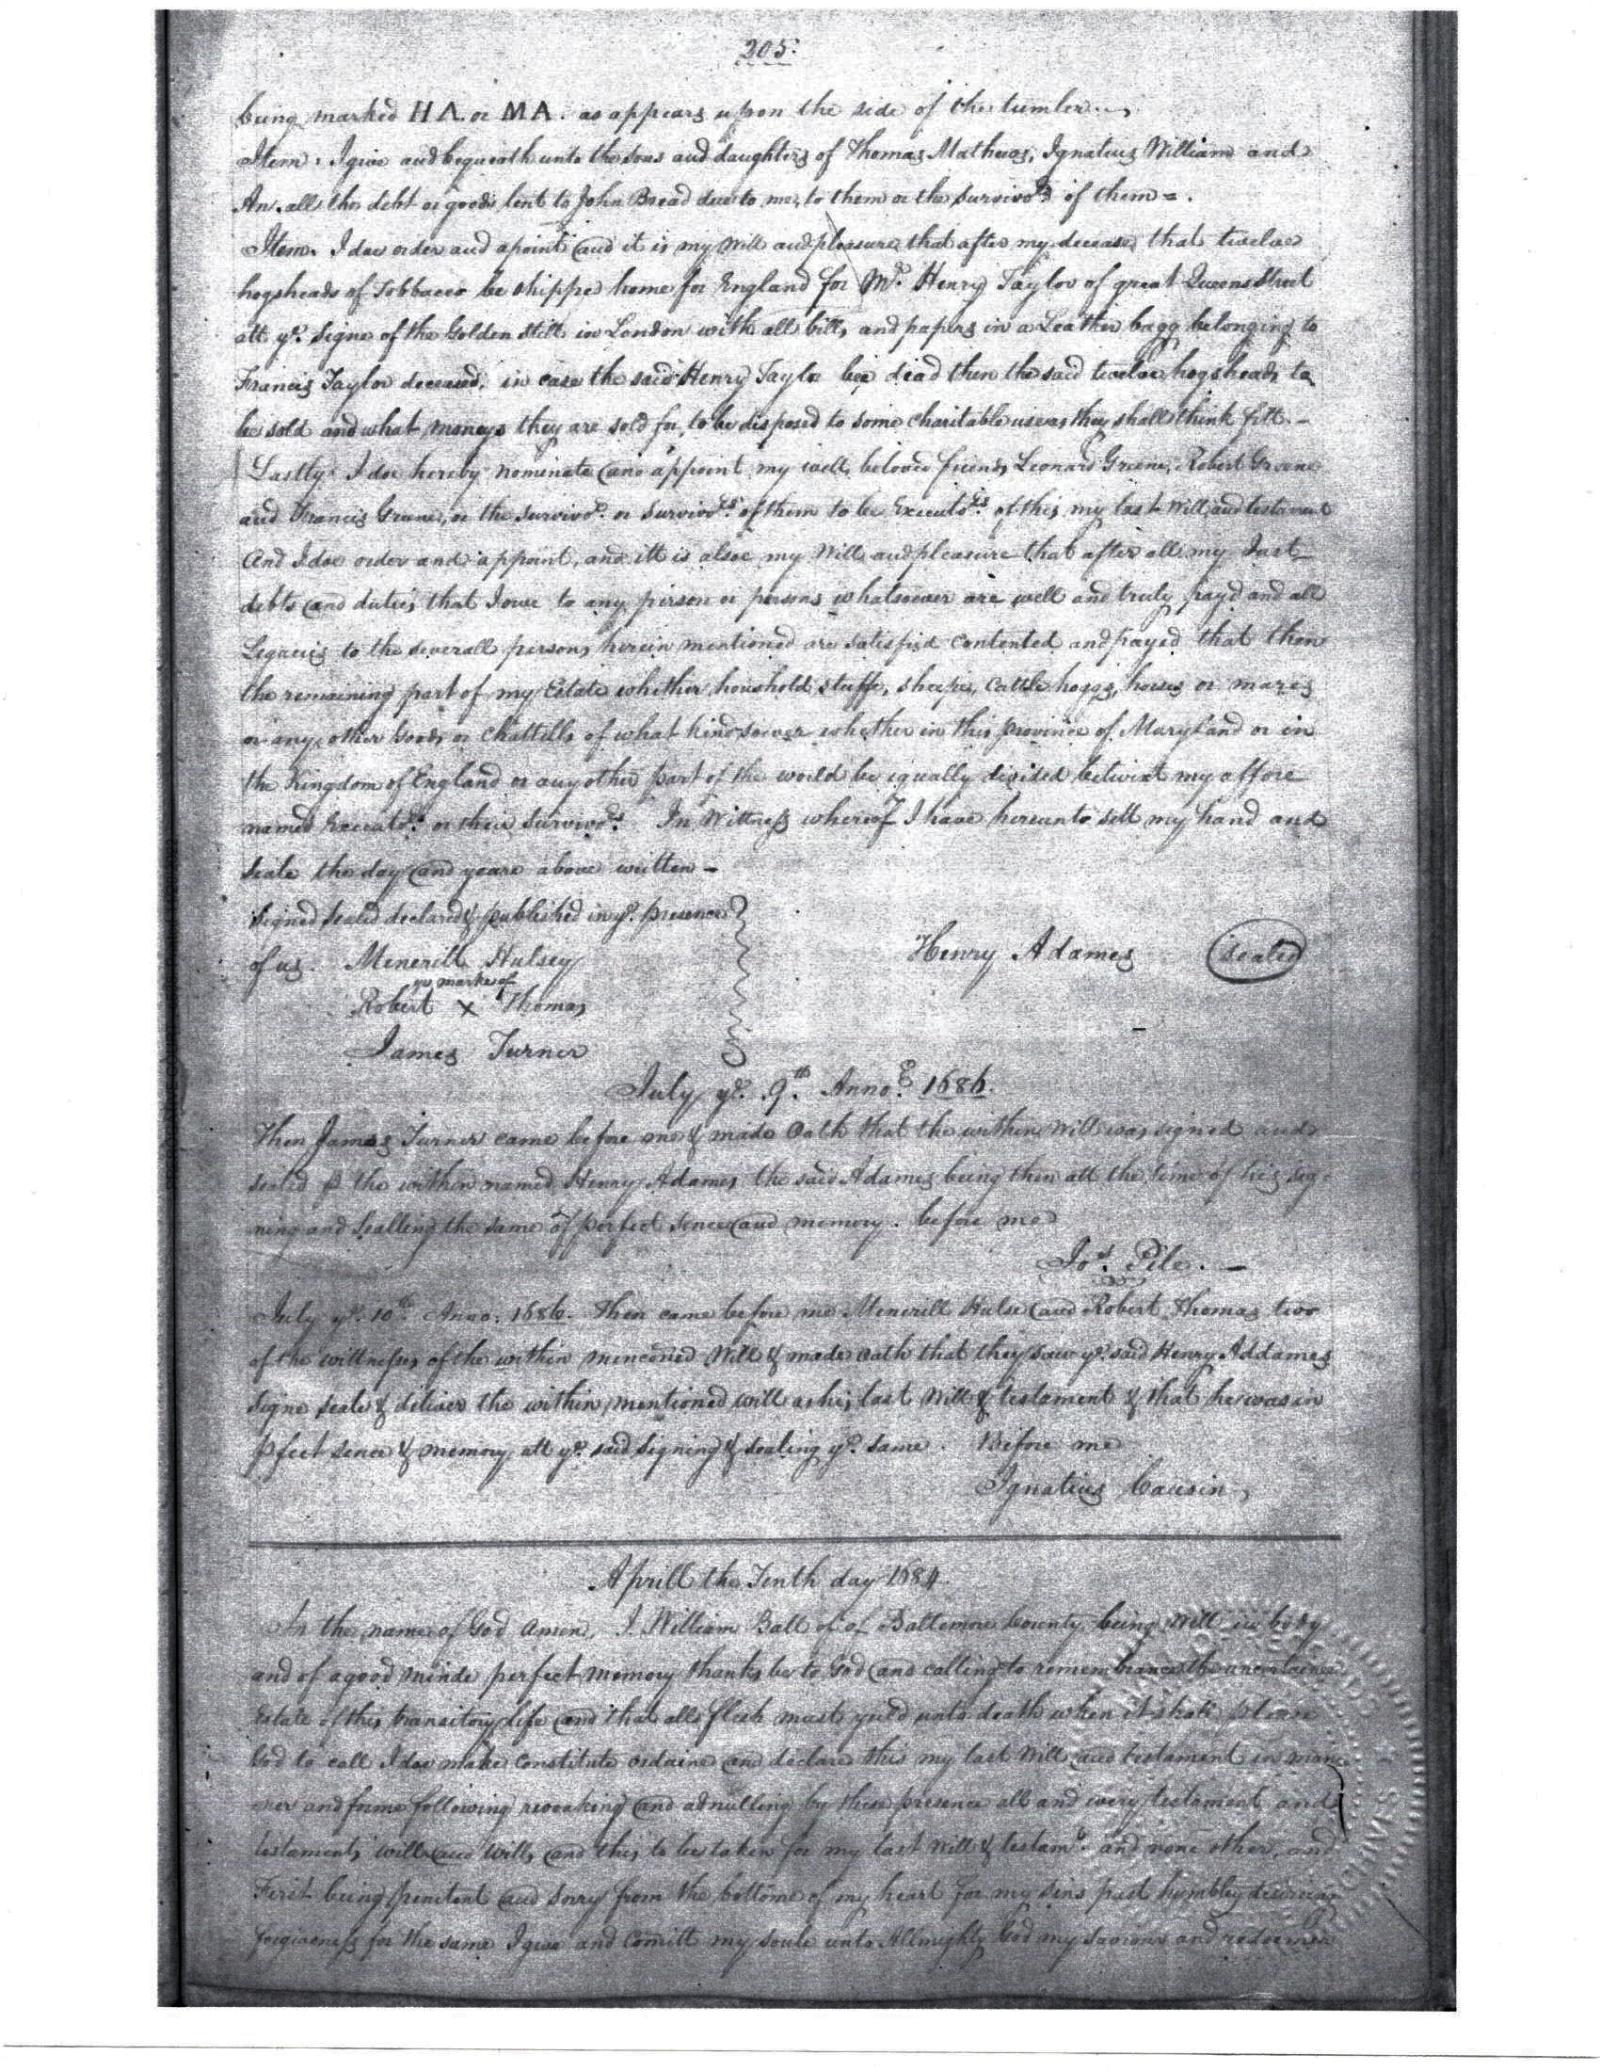 205.
being marked HA. or MA. as appears upon the side of the tumler..,
Item. I give and bequeath unto the sons and daughters of Thomas Mathews, Ignatius William and
An. all the debt or goods lent to John Bread due to me, to them or the Survivo.rs of them =.
Item. I doe order and apoint and it is my Will and pleasure that after my decease, that twelve
hogsheads of Tobbacco be shipped home for England for Mr. Henry Taylor of great Queens Street
att ye. Signe of the Golden Still in London with all bills and papers in a Leather bagg belonging to
Francis Taylor deceased, in case the said Henry Taylor bee dead then the said twelve hogsheads to
be sold and what moneys they are sold for, to be disposed to some charitable use as they shall think fitt. -
Lastly I doe hereby nominate and appoint my well beloved friends Leonard Greene, Robert Greene
and Francis Greene, or the Survivor. or Survivors. of them to be Executors. of this my last Will and testament
And I doe order and appoint, and itt is alsoe my Will and pleasure that after all my Just
debts and duties that I owe to any person or persons whatsoever are well and truly payd and all
Legacies to the severall persons herein mentioned are satisfied contented and payed that then
the remaining part of my Estate whether houshold stuffe, sheepe, Cattle hoggs, horses or mares
or any other Goods or Chattells of what kind soever whether in this province of Maryland or in
the Kingdom of England or any other part of the world be equally divided betwixt my affore
named Executors. or their Survivors. In Wittness whereof I have hereunto sett my hand and
Seale the day and yeare above written -
Signed Sealed declared & published in ye. presence
of us. Menerill Hulsey
Henry Adames Sealed
ye marke of
Robert X Thomas
James Turner
July ye. 9.th Anno.o 1686.
Then James Turner came before me & made Oath that the within Will was signed and
sealed p the within named Henry Adames the said Adames being then att the time of his sig-
ning and Sealling the same of perfect sence and memory. before me
Jos. Pile. -
July ye. 10th Anno. 1686. Then came before me Menerill Hulse and Robert Thomas two
of the wittnesses of the within menconed Will & made oath that they saw ye. said Henry Addames
Signe seale & deliver the within mentioned will as his last Will & testament & that he was in
pfect sence & memory att ye. said Signing & sealing ye. same. Before me
Ignatius Causin,
Aprill the Tenth day 1684.
In the name of God Amen, I William Ball of of Baltemore County being well in body
and of a good minde perfect memory thanks be to God and calling to remembrance the uncertaine
Estate of this transitory life and that all flesh must yeild unto death when it shall please
God to call I doe make Constitute ordaine and declare this my last Will and testament in man-
ner and forme following revoaking and adnulling by these presence all and every testament and
testaments will and wills and this to be taken for my last Will & testamt. and none other, and
First being penitent and sorry from the bottome of my heart for my sins past humbley desireing
forgiveness for the same I give and comitt my soule unto Allmighty God my Saviour and redeemer